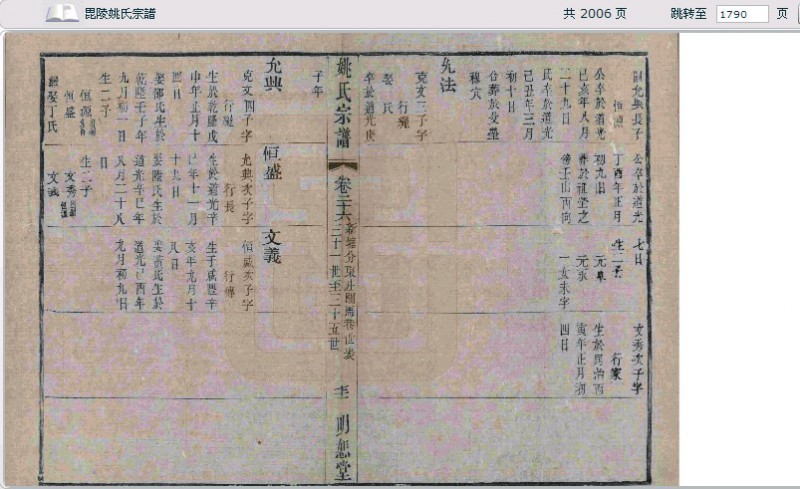 毘陵姚氏宗譜
共 2006 页
跳转至 1790 页
嗣允典長子
恒源
公卒於道光
己亥年八月
二十九日
氏卒於道光
己丑年三月
初十日
穆穴
公卒於道光
丁酉年正月
初九日
葬於祖塋之
傍壬山丙向
七日
生二子
元
元永
一女未字
文秀次子字
行家
生於同治丙
寅年正月初
四日
允法
克文三子字
行
娶 氏
卒於道光庚
姚氏宗譜
卷三十六
二十一世至二十五世
明恕堂
子年
允典
克文四子字
行
生於乾隆戊
申年正月十
四日
娶邵氏生於
乾隆壬子年
九月初一日
生二子
恒源
恒盛
繼娶丁氏
恒盛
允典次子字
行長
生於道光辛
巳年十一月
十九日
娶陸氏生於
道光辛巳年
月二十八
日
生二子
文秀
文義
文義
恒盛次子字
行傳
生于咸豐辛
亥年九月十
八日
娶黄氏生於
道光己酉年
九月初九日